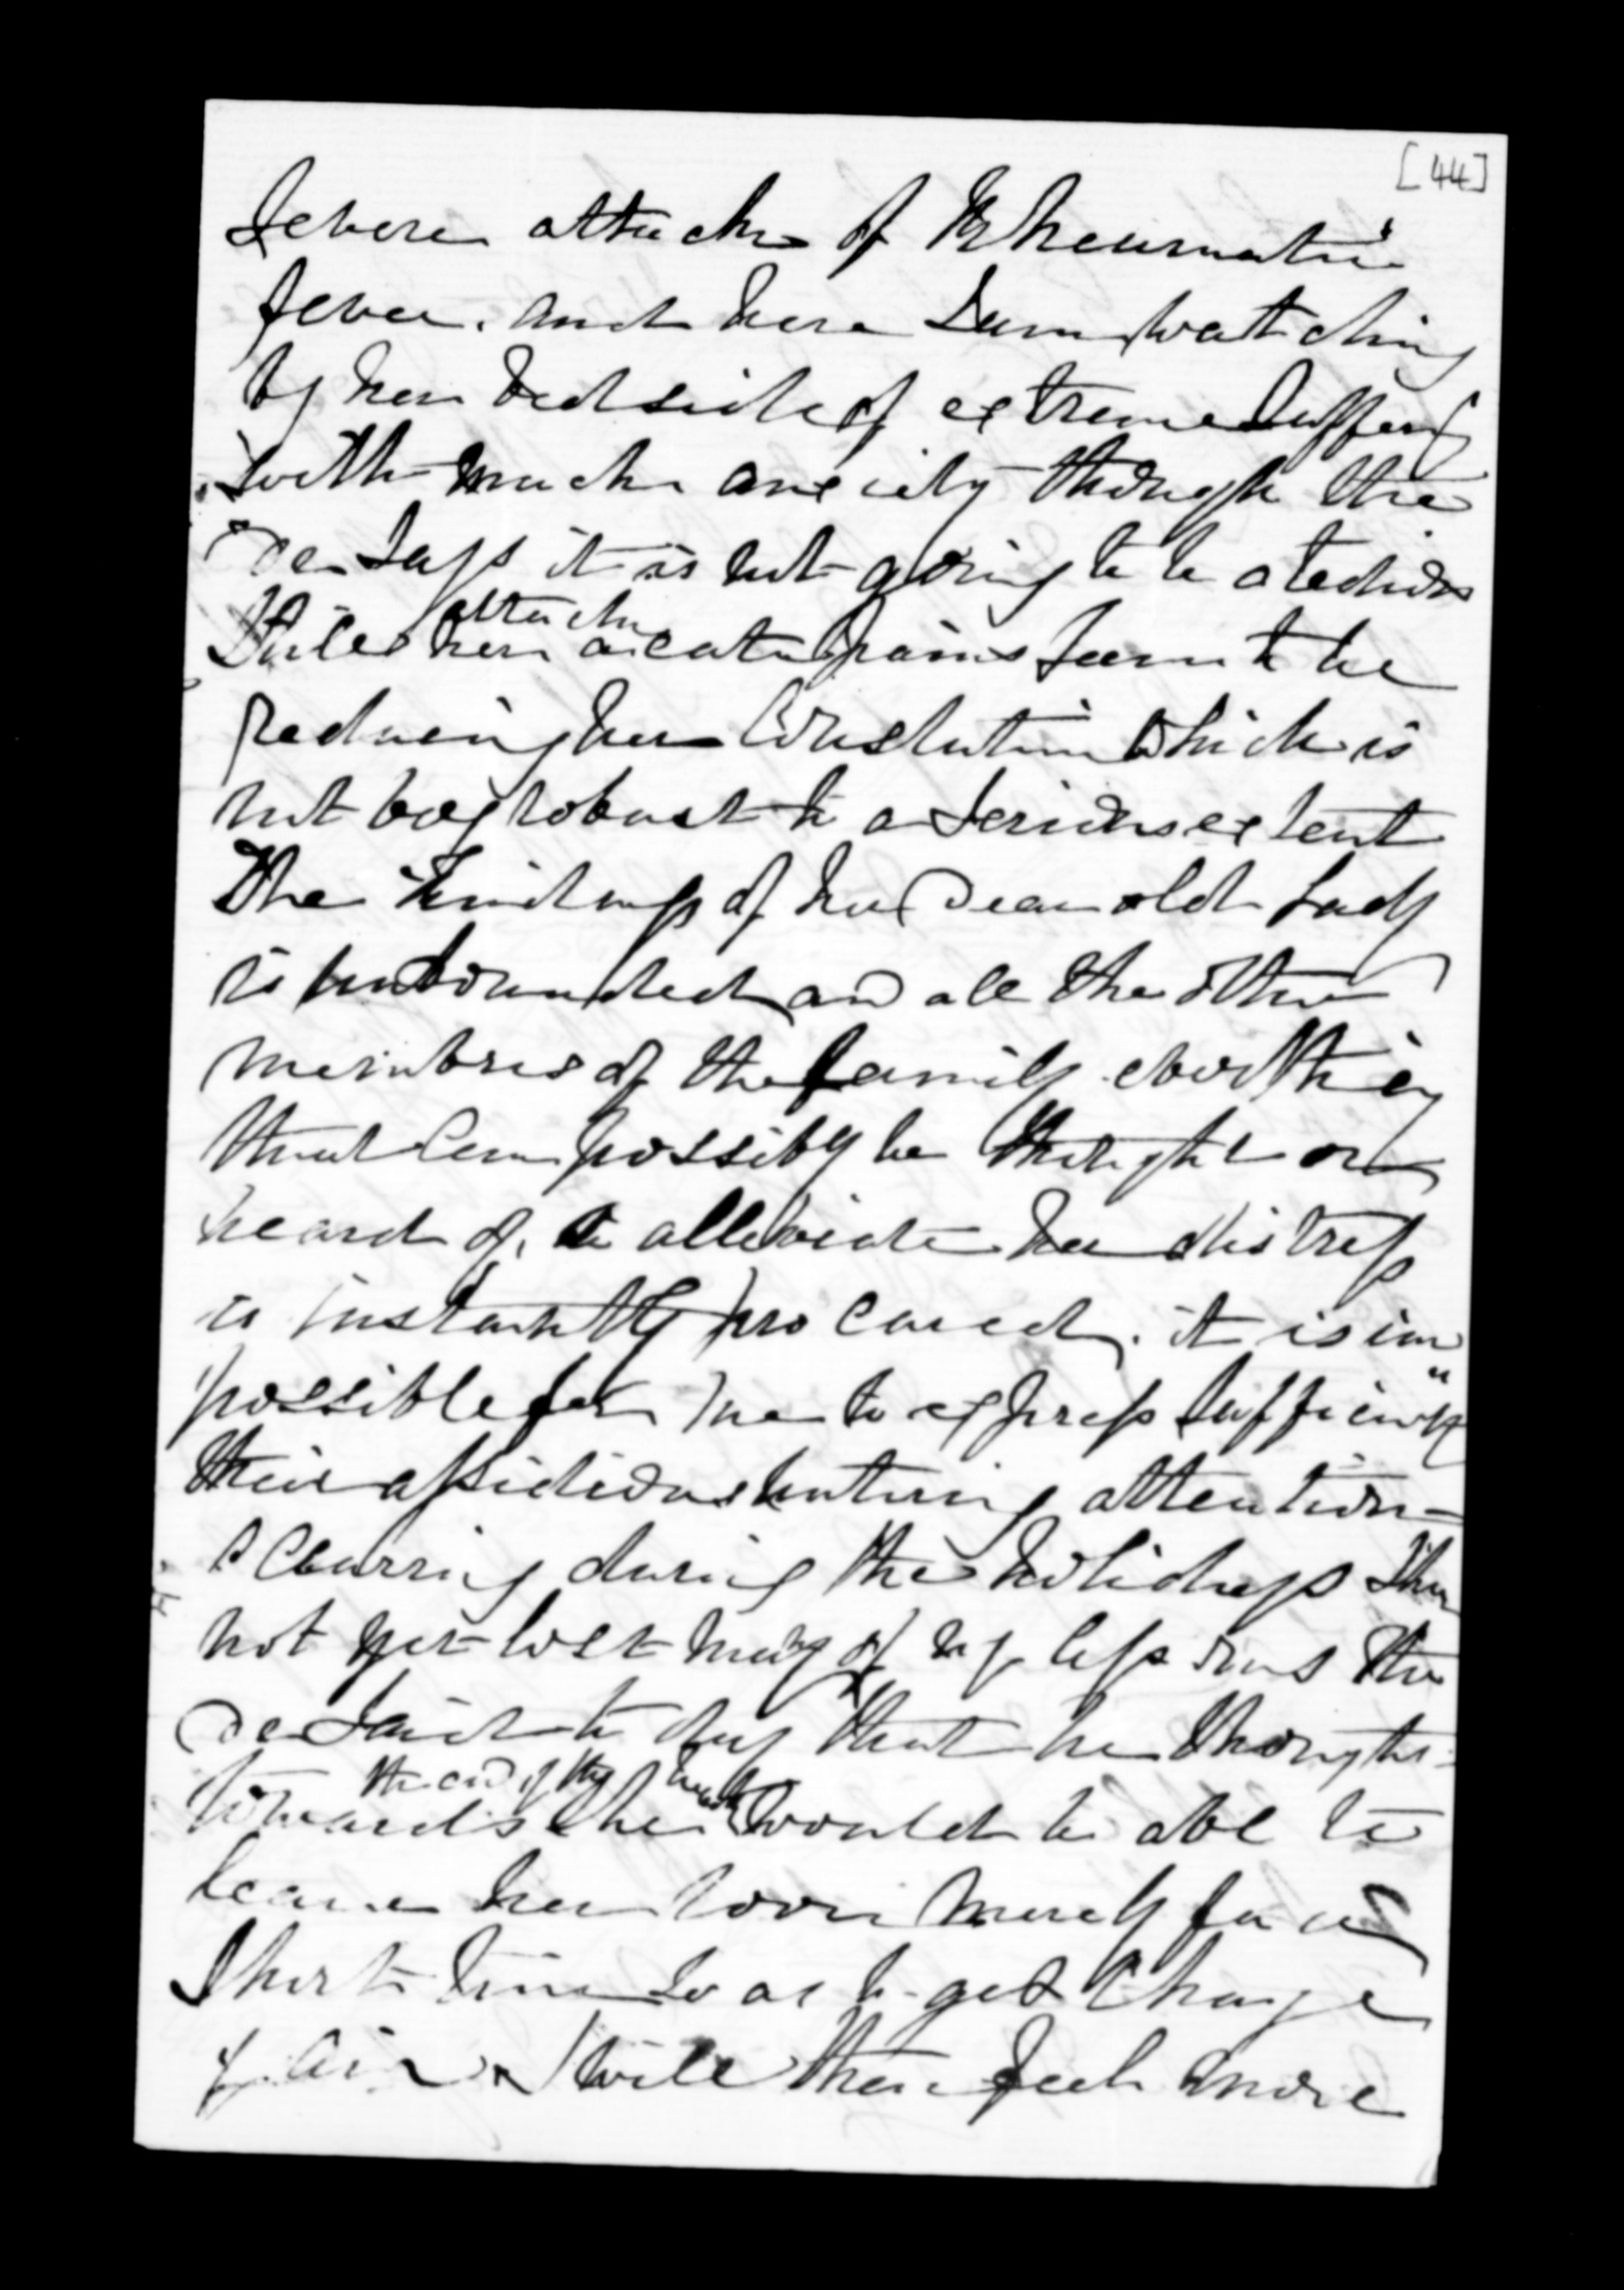 [44]
Severe attacks of Rheumatic
fever. and here I am watching
by her bedside of extreme suffering
with much anxiety though the
Dr says it is not going to be a tedious
attack
Still her acute pains seem to be
reducing her Constitution which is
not very robust to a serious extent
The kindness of her Dear old Lady
is unbounded and all the other
members of the family everything
that Can possibly be thought or
heard of, to alleviate her distress
is instantly procured. it is im
possible for me to express sufficiently
their assiduous untiring attention
occurring during the holidays I have
not yet lost many of my lessons the
Dr said to day that he thought
the end of the week
towards she would be able to
leave her room merely for a
Short time so as to get Change
of air I will then feel more